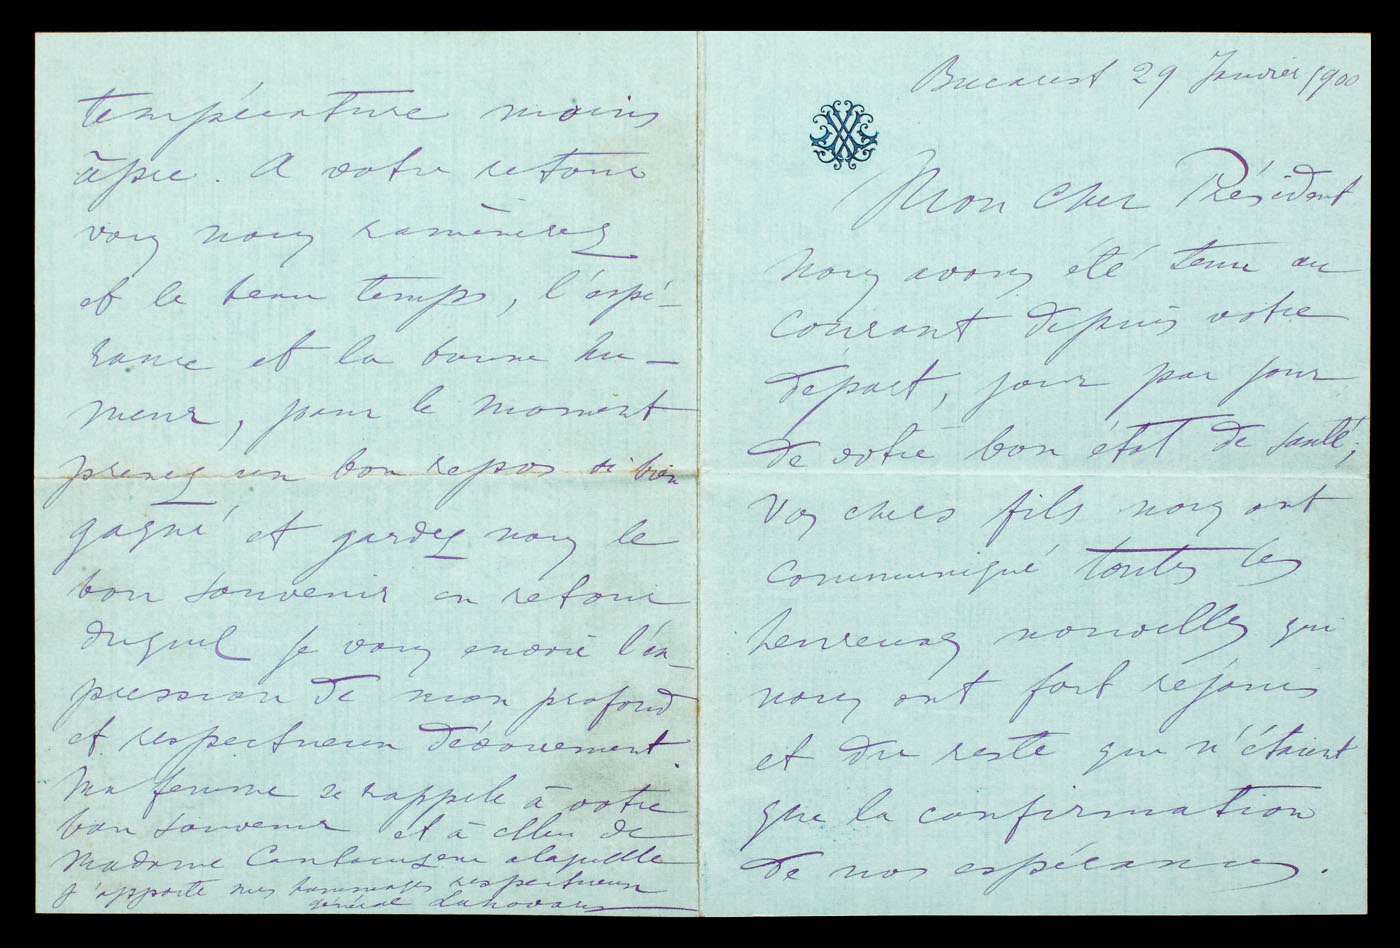 Bucarest 29 Janvier 1900
Mon cher Président
nous avons été tenu au
courant depuis votre
départ, jour par jour
de votre bon état de santé;
Vos chers fils nous ont
communiqué toutes les
heureuses nouvelles qui
nous ont fort réjouis
et du reste qui n'étaient
que la confirmation
de nos espérances.
température moins
âpre. A votre retour
vous nous ramènerez
et le beau temps, l'espé-
rance et la bonne hu-
meur, pour le moment
prenez un bon repos si bien
gagné et gardez nous le
bon souvenir en retour
duquel je vous envoie l'ex-
pression de mon profond
et respectueux dévouement.
Ma femme se rappele à votre
bon souvenir et à celui de
Madame Cantacuzene a laquelle
j'apporte mes hommages respectueux
général Lahovary